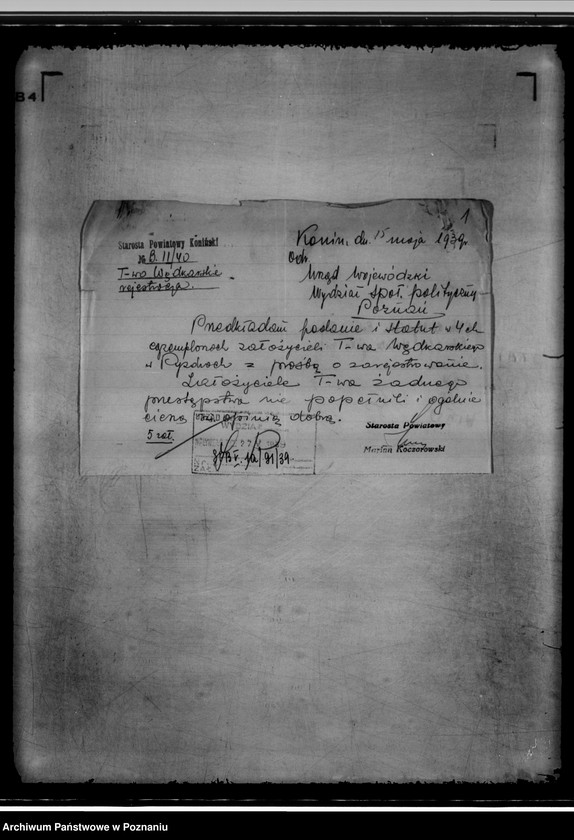 B4
1
Starosta Powiatowy Koniński
№ B. II/40
T-wo Wędkarskie
rejestracja.
Konin, dn. 15 maja 1939 r.
Do
Urząd Wojewódzki
Wydział społ. polityczny
Poznań
Przedkładam podanie i statut w 4 ch
egzemplarzach założycieli T-wa Wędkarskiego
w Pyzdrach z prośbą o zarejestrowanie.
Założyciele T-wa żadnego
przestępstwa nie popełnili i ogólnie
cieszą się opinią dobrą.
5 zał.
WYDZIAŁ
Starosta Powiatowy
Marian Koczorowski
Archiwum Państwowe w Poznaniu